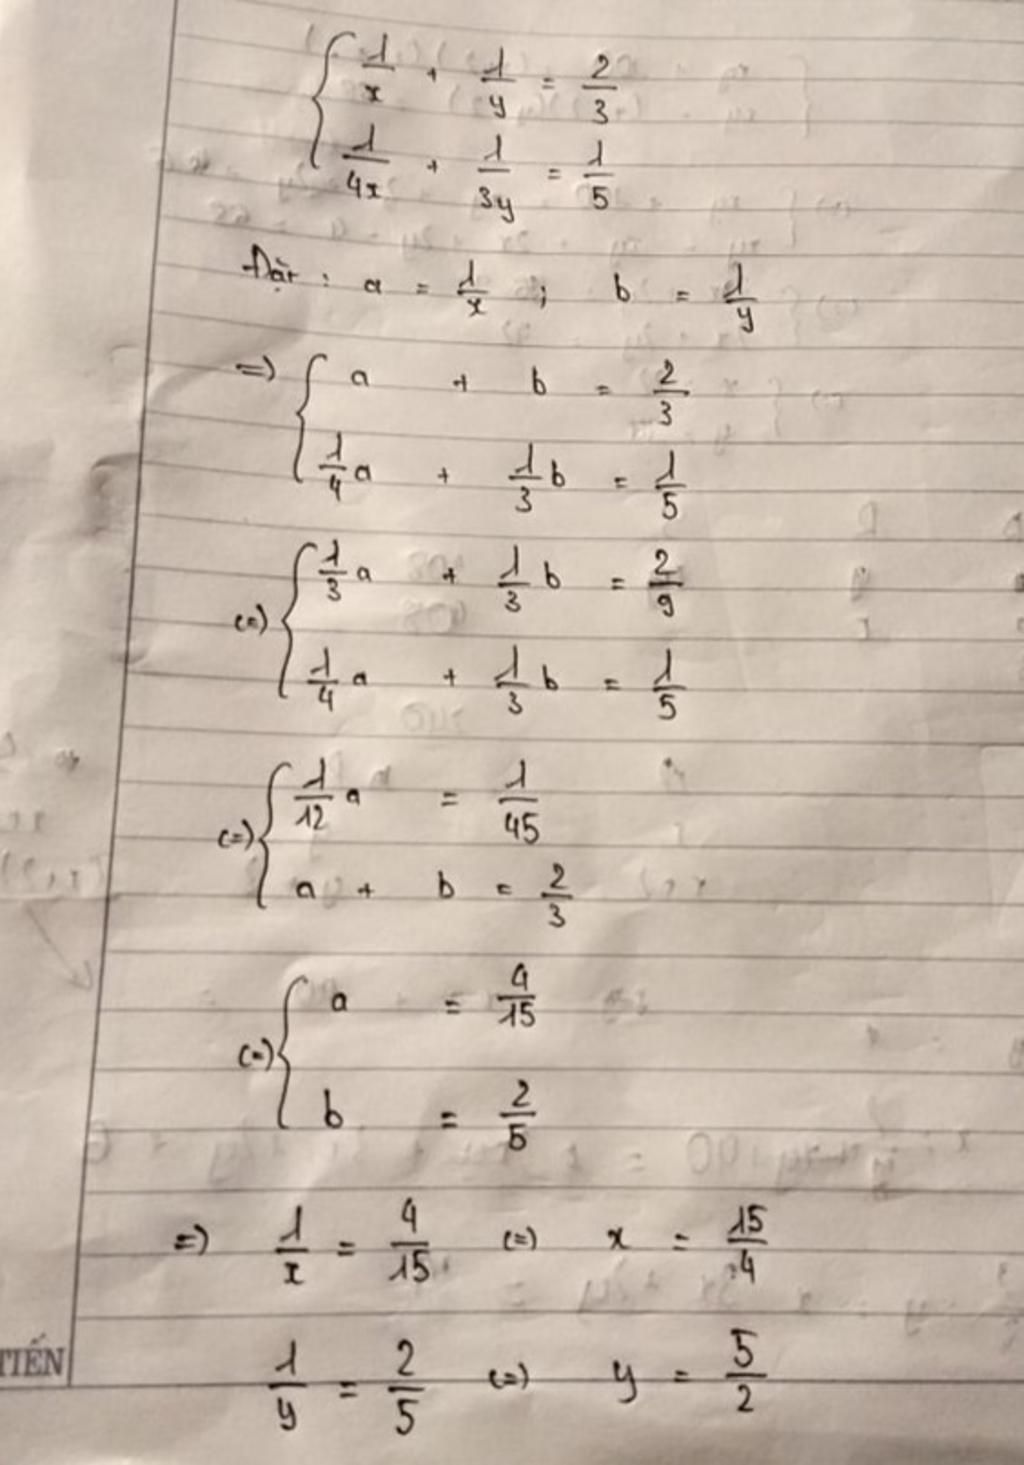 { 1/x + 1/y = 2/3
1/4x + 1/3y = 1/5
Đặt : a = 1/x ; b = 1/y
=> { a + b = 2/3
1/4 a + 1/3 b = 1/5
(=) { 1/3 a + 1/3 b = 2/9
1/4 a + 1/3 b = 1/5
(=) { 1/12 a = 1/45
a + b = 2/3
(=) { a = 4/15
b = 2/5
=> 1/x = 4/15 (=) x = 15/4
1/y = 2/5 (=) y = 5/2
TIẾN